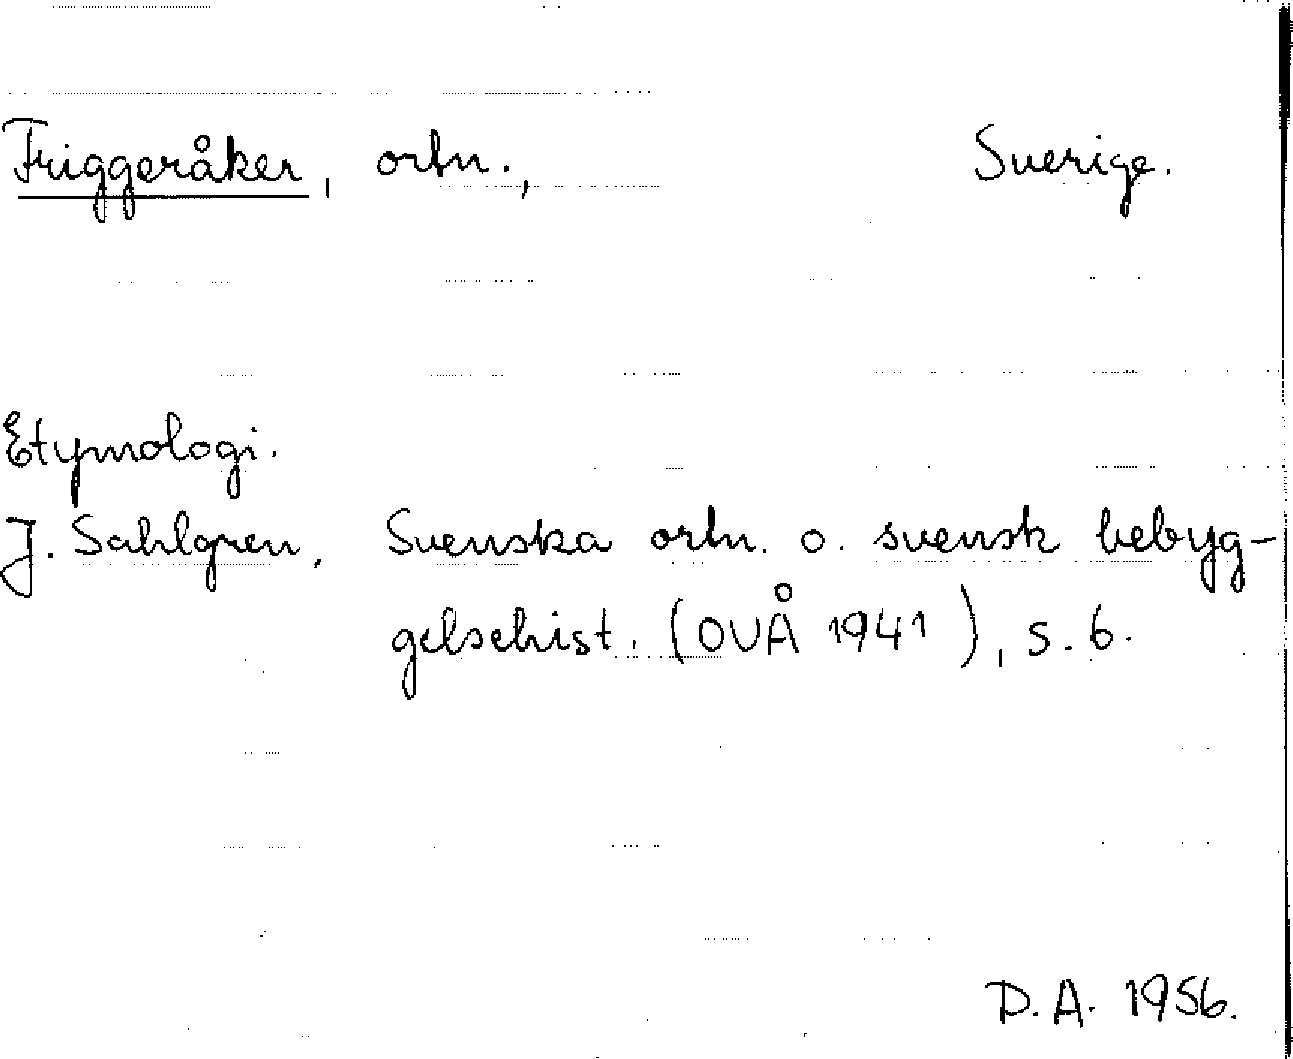 Friggeråker, ortn., Sverige.
Etymologi.
J. Sahlgren, Svenska ortn. o. svensk bebyg-
gelsehist. (OVÅ 1941), s. 6.
D. A. 1956.